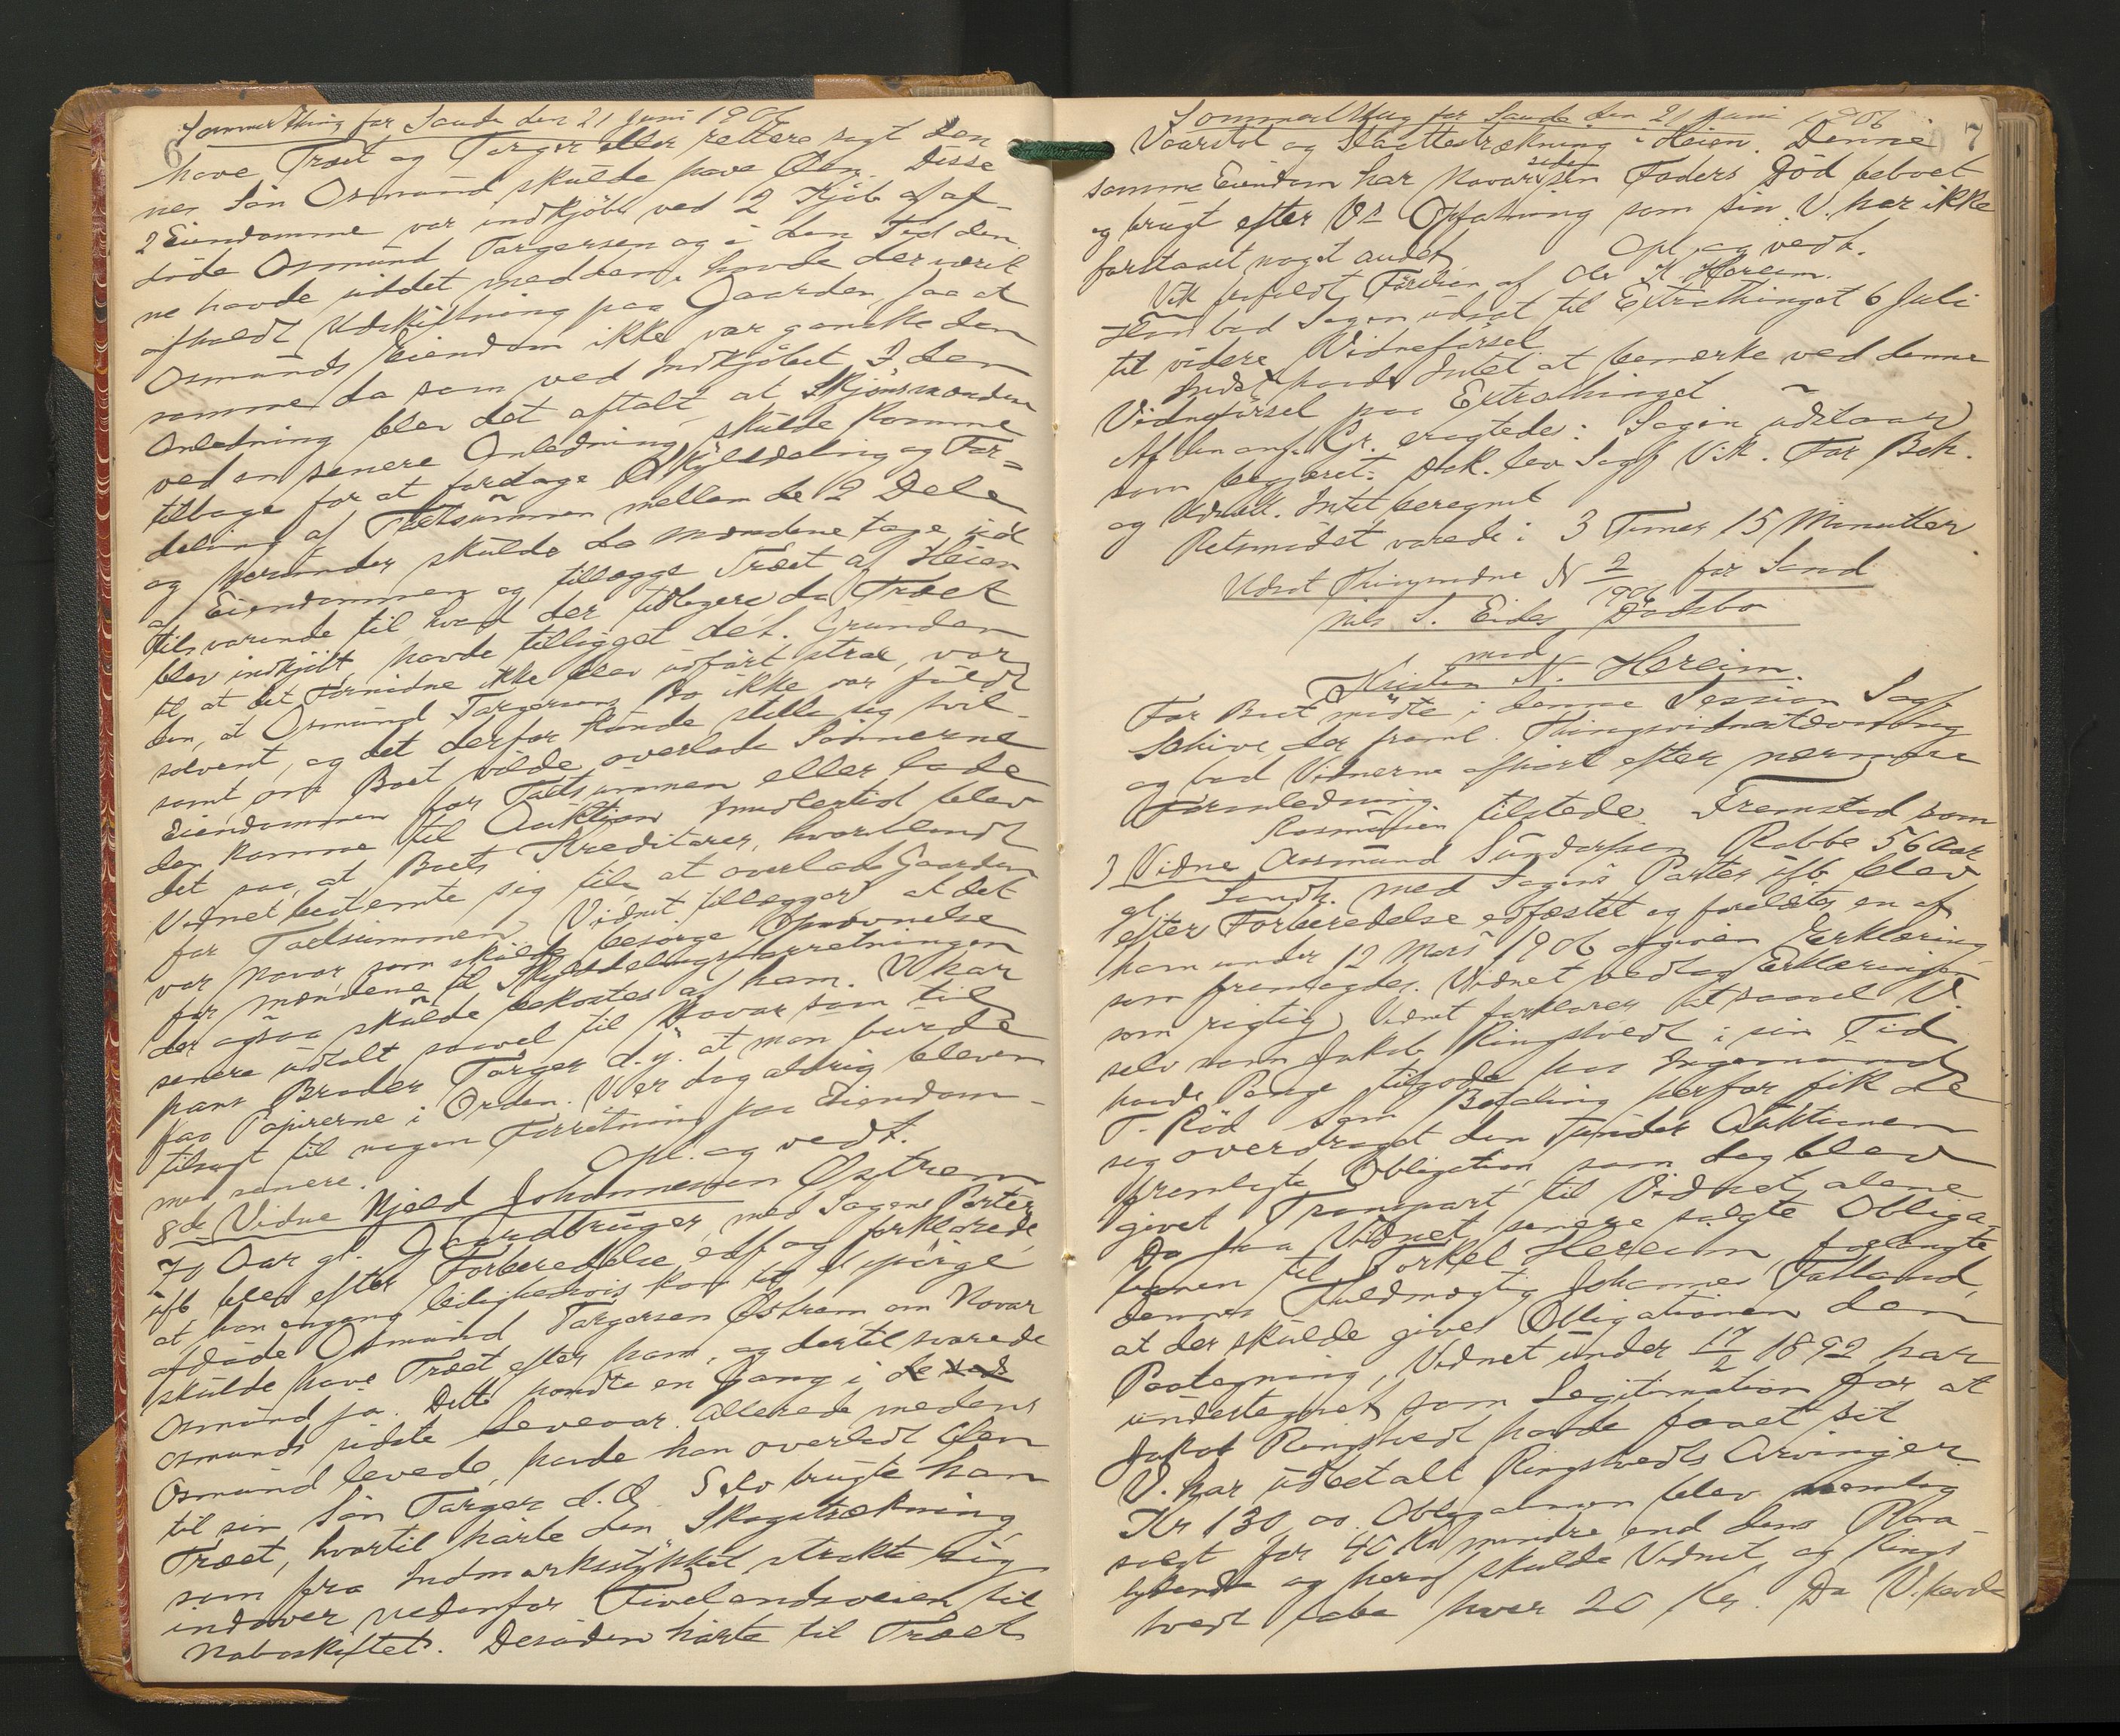 6
SommerThing for Saude den 21 Juni 1906
have Træet og Torger eller rettere sagt den
nes Sön Osmund skulde have Øen. Disse
2 Eiendomme var indkjöbt ved 2 Kjöb af af-
döde Osmund Torgersen og i den Tid den-
ne havde siddet med dem, havde der værit
afholdt Udskiftning paa Gaarden, saa at
Osmunds Eiendom ikke var ganske den
samme da som ved Indkjöbet. I den
Anledning blev det aftalt at Skjönsmændene
ved en senere Anledning skulde komme
tilbage for at foretage Skyldeling og For-
deling af Taxtsummen mellem de 2 Dele
og herunder skulde da Mændene tage ud
af Eiendommen og tillægge Træet af Heien
tilsvarende til hvad der tidligere da Træet
blev indkjöbt, havde tilligget det. Grunden
til, at det Fornødne ikke blev udfört strax, var
den, at Osmund Torgersens Bo ikke var fuldt
solvent, og det derfor kunde stille sig tvil-
somt, om Boet vilde overlade Sönnerne
Eiendommen for Taxtsummen eller lade
den komme til Auktion. Imidlertid blev
det saa, at Boets Kreditorer, hvoriblandt
Vidnet bestemte sig til at overlade Gaarden
for Taxtsummen. Vidnet tillægger at det
var Navar, som skulde besørge Opnævnelse
for Mændene til Skyldelingsforretningen
der ogsaa skulde bekostes af ham. V. har
senere udtalt saavel til Navar som til
hans Broder Torger d.y. at man burde
faa Papirerne i Orden. V. er dog aldrig bleven
tilsagt til nogen Forretning paa Eiendom-
men senere. Opl. og vedt.
8de Vidne Kjeld Johannessen Østrem
70 Aar gl. Gaardbruger, med Sagens Parter
usb. blev efter Forberedelse edf. og forklarede,
at han engang leilighedsvis kom til at spörge
afdöde Osmund Torgersen Østrem om Navar
skulde have Træet efter ham, og dertil svarede
Osmund ja. Dette hændte en Gang i de ved
Osmunds sidste Leveaar. Allerede medens
Osmund levede, havde han overladt Øen
til sin Sön Torger d.Æ. Selv brugte han
Træet, hvortil hörte den Skogstrækning,
som fra Indmarksstykket strakte sig
indover nedenfor Tivelandsveien til
Naboskiftet. Desuden hörte til Træet
7
SommerThing for Saude den 21 Juni 1906
Vaarstöl og Slaattestrækning i Heien. Denne
samme Eiendom har Navar siden sin Faders Död beboet
og brugt efter V.s Opfatning som sin. V. har ikke
forstaaet noget andet. Opl. og vedt.
Vik frafaldt Förelsen af Ole K. Hereim.
Han bad Sagen udsat til Extrathinget 6 Juli
til videre Vidneförsel
Indst. havde Intet at bemærke ved denne
Vidneförsel paa Extrathinget
Af den anf. Gr. eragtedes: Sagen udstaar
som begjæret. Dok. lev. Sagf. Vik. For Bek.
og Udsætt. Intet beregnet
Retsmödet varede i 3 Timer 15 Minutter.
Udsat Thingsvidne N 2/1906 for Sand
Nils S. Eides Dødsbo
mod
Kristen N. Hereim.
For Boet mödte i denne Session Sagf.
Schive der freml. Thingsvidnestævning
og bad Vidnerne afhört efter nærmere
Foranledning.
Rasmussen tilstede. Fremstod som
1 Vidne Aasmund Sundersen Rabbe 56 Aar
gl. Sandh. med Sagens Parter usb. blev
efter Forberedelse edfæstet og forelæst en af
ham under 12 Mars 1906 afgiven Erklæring
som fremlagdes. Vidnet vedtog Erklæringen
som rigtig. Vidnet forklarer at saavel V.
selv som Jakob Ringstvedt i sin Tid
havde Penge tilgode hos Ingemund
T. Röd. Som Betaling herfor fik de
sig overdraget den under Auktionen
fremlagte Obligation, som dog blev
givet Transport til Vidnet alene.
Da saa Vidnet senere solgte Obliga-
tionen til Torkel Hereim, forlangte
dennes Fuldmægtig Johannes Fatland,
at der skulde gives Obligationen den
Paategning, Vidnet under 17/2 1892 har
undertegnet som Legitimation for at
Jakob Ringstvedt havde faaet sit
V. har udbetalt Ringstvedts Arvinger
Kr 130,00. Obligationen blev nemlig
solgt for 40 Kr mindre end dens Paa-
lydende og heraf skulde Vidnet og Rings-
tvedt tabe hver 20 Kr. Da V. havde